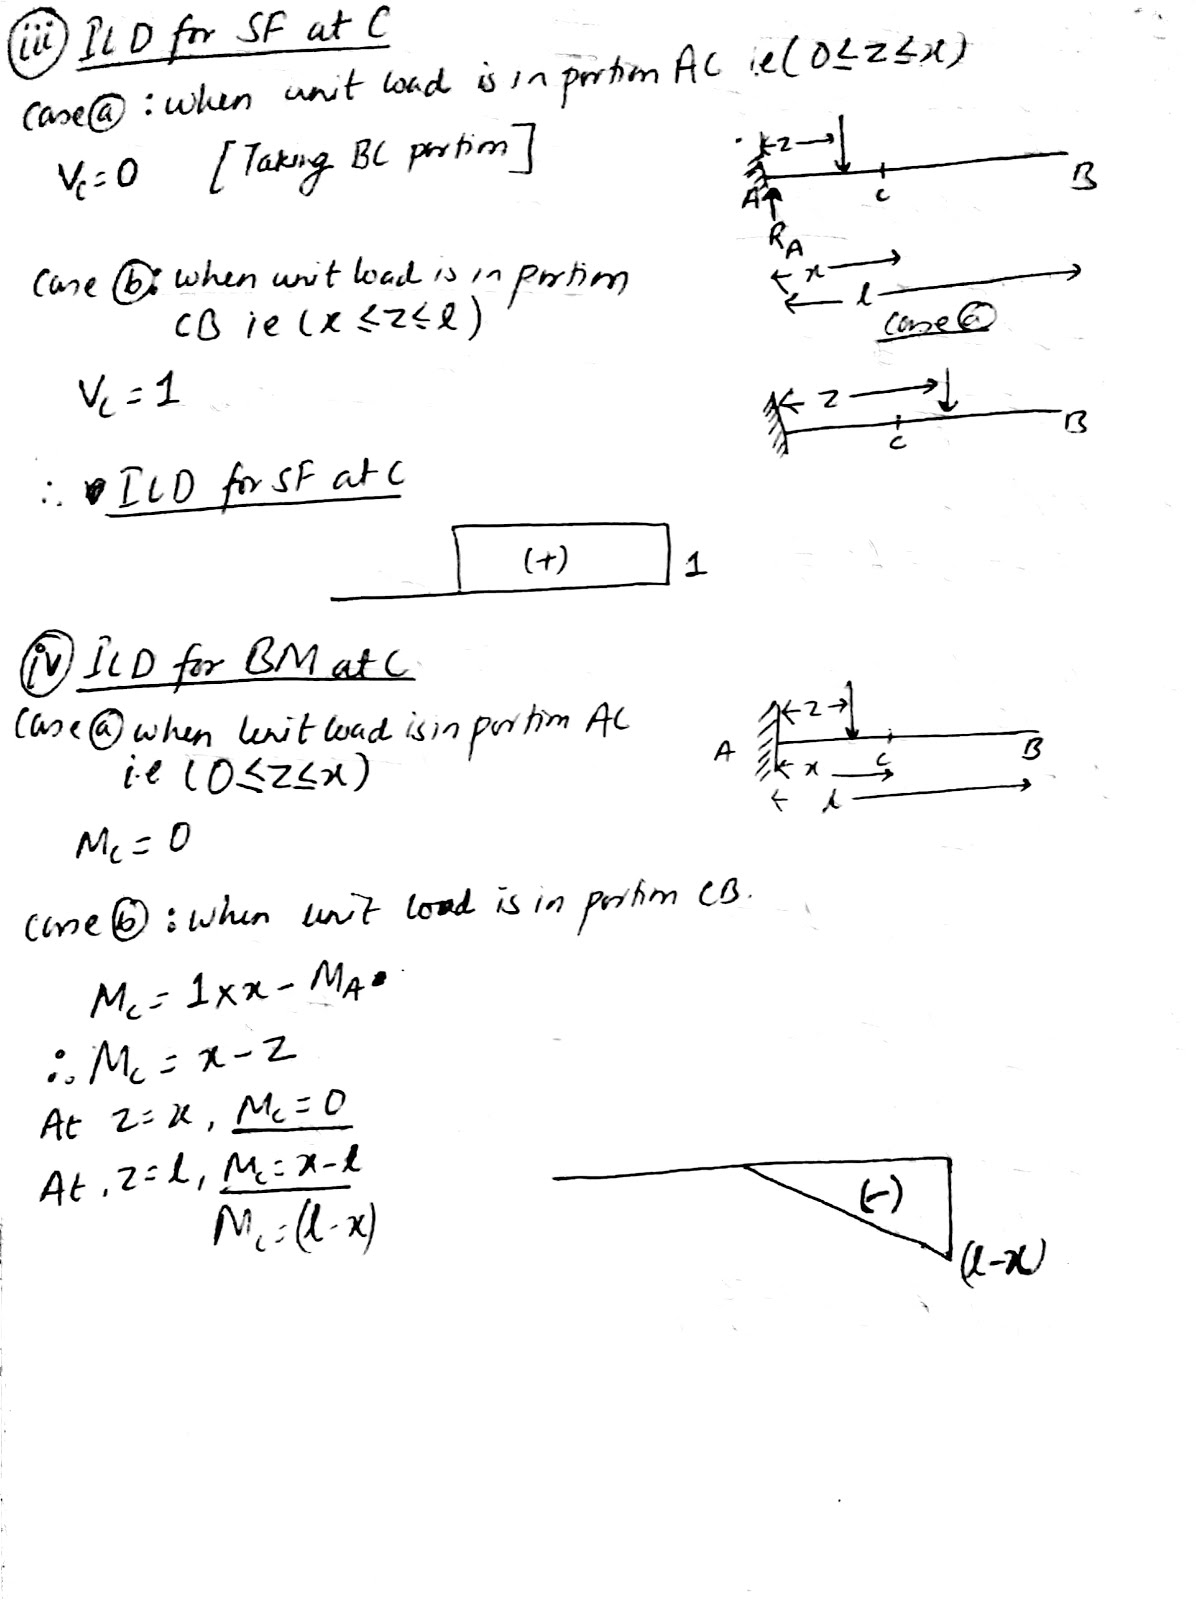 (iii) ILD for SF at C
Case (a) : when unit load is in portion AC ie (0≤z≤x)
Vc = 0 [Taking BC portion]
z
A
C
B
RA
x
l
Case (a)
Case (b): when unit load is in portion
CB ie (x≤z≤l)
Vc = 1
z
C
B
∴ ILD for SF at C
(+)
1
(iv) ILD for BM at C
Case (a) when unit load is in portion AC
i.e (0≤z≤x)
z
A
C
B
x
l
Mc = 0
Case (b) : when unit load is in portion CB.
Mc = 1×x - MA
∴ Mc = x - z
At z = x, Mc = 0
At, z = l, Mc = x-l
Mc = (l-x)
(-)
(l-x)